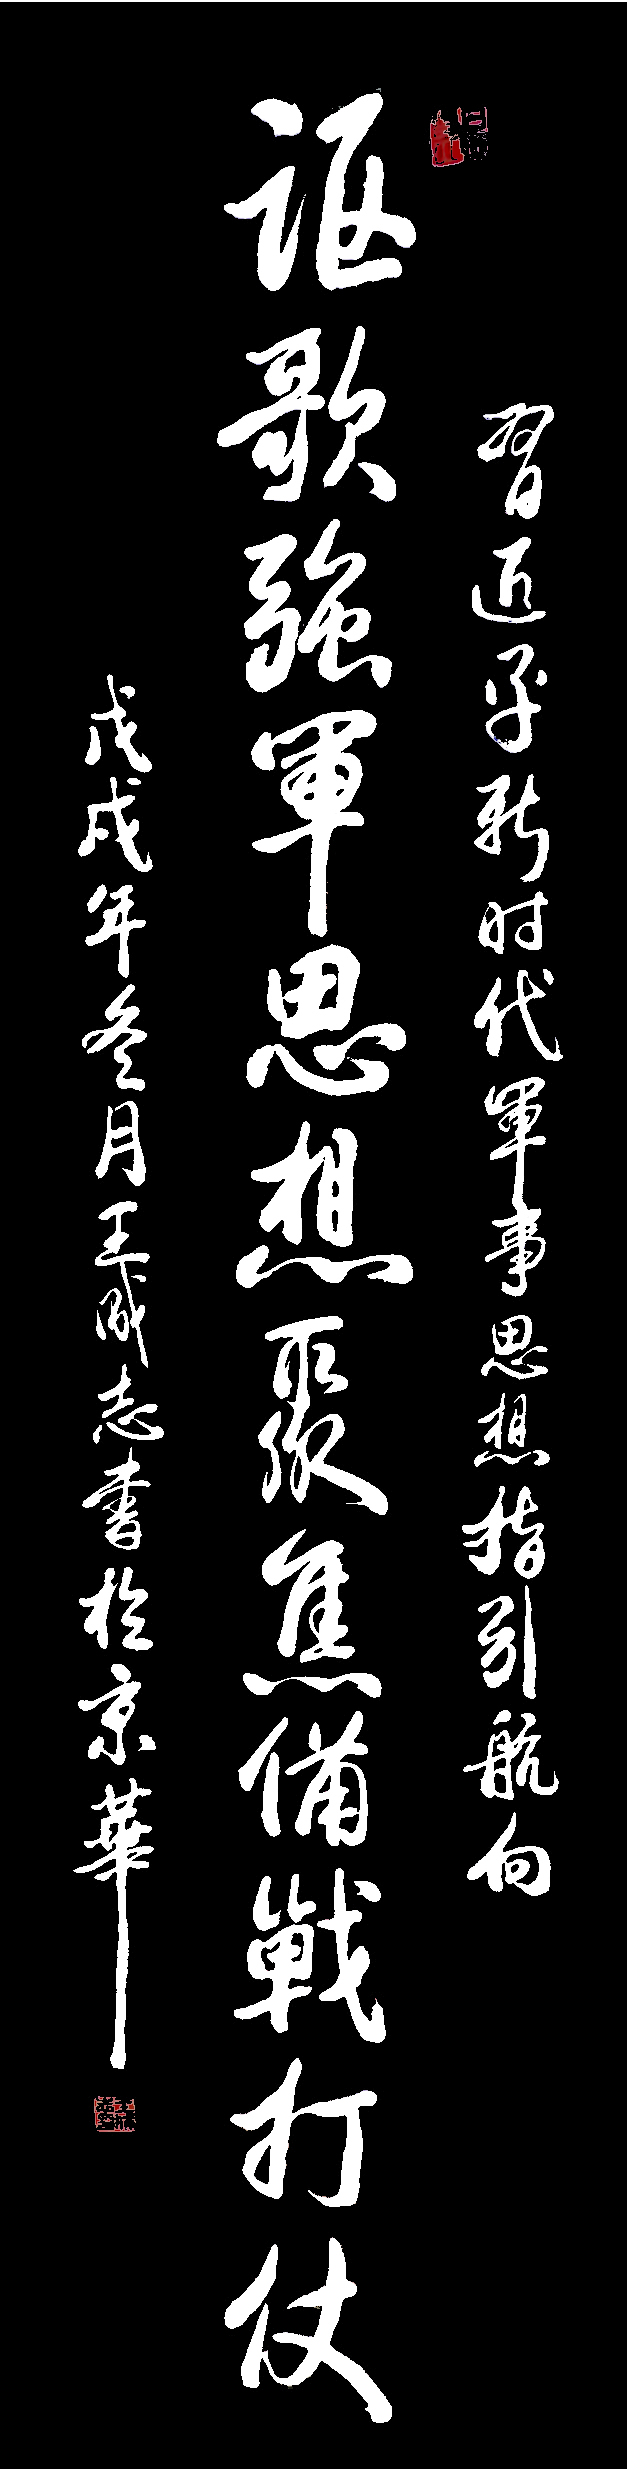 習近平新时代軍事思想指引航向
讴歌強軍思想聚焦備戰打仗
戊戌年冬月王成志書於京華